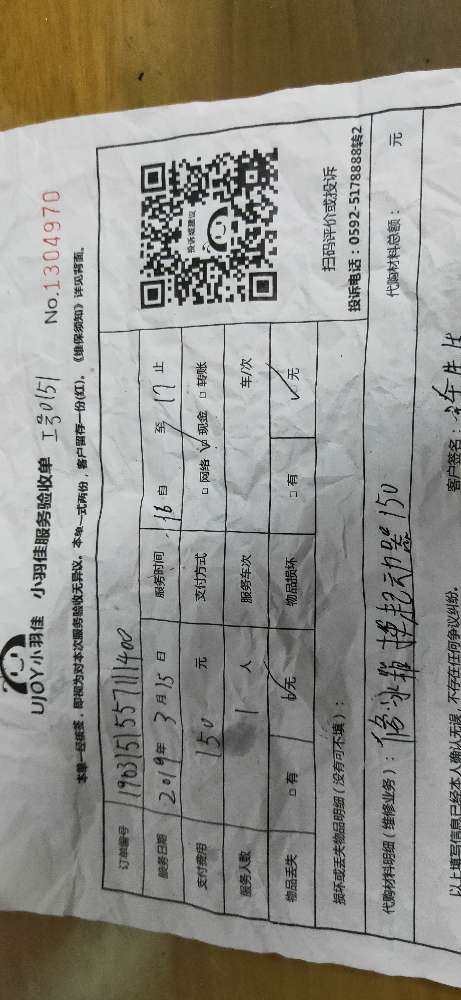 UJOY小羽佳 小羽佳服务验收单 工号0151 No.1304970
本单一经签发,即视为对本次服务验收无异议。本单一式两份,客户留存一份(红),《维保须知》详见背面。
订单编号 1903151557111400
服务日期 2019年3月15日 服务时间 16自 至 17 止
支付费用 150 元 支付方式 □网络 ☑现金 □转账
服务人数 1 人 服务车次 车/次
物品丢失 □有 ☑无 物品损坏 □有 ☑无
投诉或建议
扫码评价或投诉
投诉电话:0592-5178888转2
损坏或丢失物品明细(没有可不填):
代购材料明细(维修业务): 修冰箱 换起动器 150 代购材料总额: 元
以上填写信息已经本人确认无误,不存在任何争议纠纷。 客户签名: